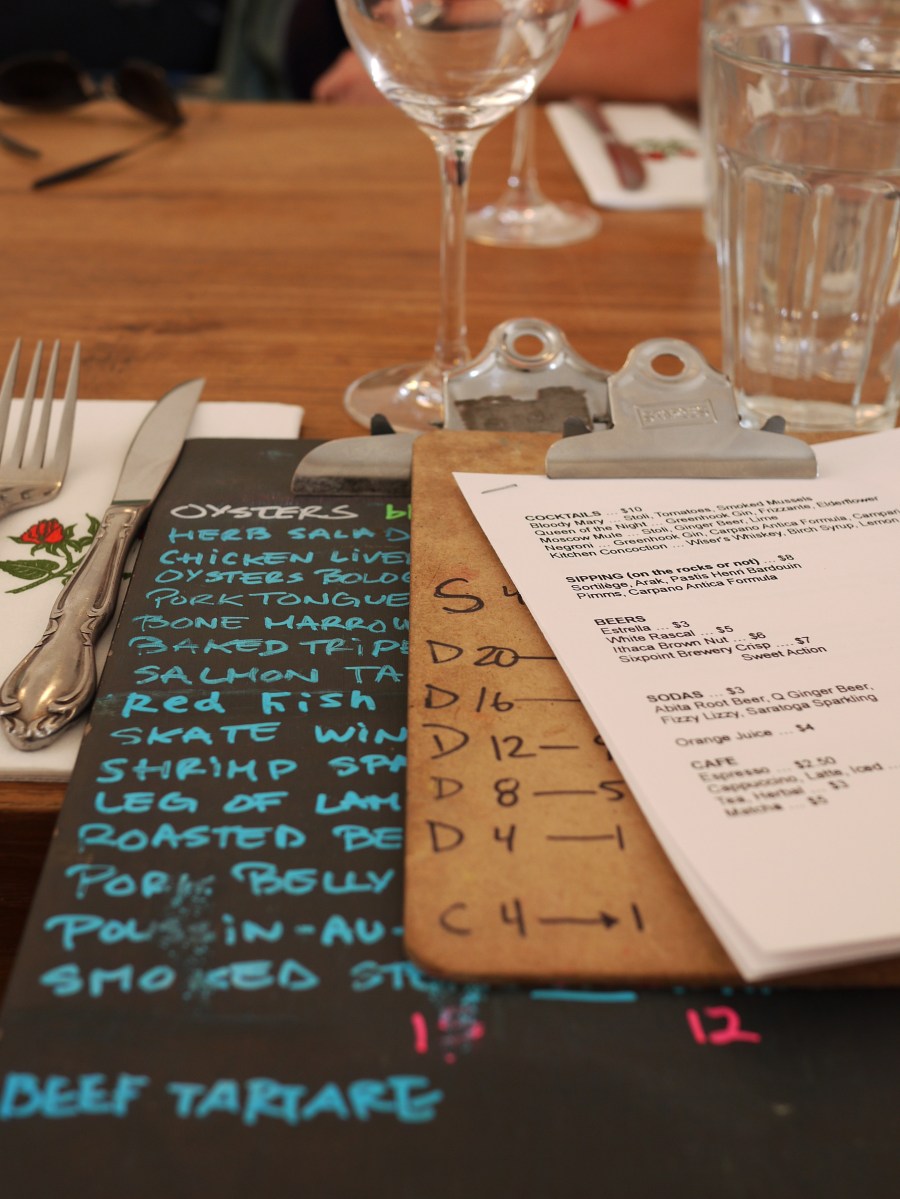 OYSTERS
HERB SALAD
CHICKEN LIVE
OYSTERS BOLOG
PORK TONGUE
BONE MARROW
BAKED TRIPE
SALMON TA
Red Fish
SKATE WiN
SHRiMP SPA
LEG OF LAM
ROASTED BE
PORK BELLY
iN-AU-
SMOKED STE
12
BEEF TARTARE
S 4
D 20—
D 16—
D 12—
D 8—5
D 4—1
C 4→1
COCKTAILS ... $10
Bloody Mary ... Stoli, Tomatoes, Smoked Mussels
Queen of the Night ... Greenhook Gin, Frizzante, Elderflower
Moscow Mule ... Stoli, Ginger Beer, Lime
Negroni ... Greenhook Gin, Carpano Antica Formula, Campari
Kitchen Concoction ... Wiser's Whiskey, Birch Syrup, Lemon
SIPPING (on the rocks or not) ... $8
Sortilège, Arak, Pastis Henri Bardouin
Pimms, Carpano Antica Formula
BEERS
Estrella ... $3
White Rascal ... $5
Ithaca Brown Nut ... $6
Sixpoint Brewery Crisp ... $7
Sweet Action
SODAS ... $3
Abita Root Beer, Q Ginger Beer,
Fizzy Lizzy, Saratoga Sparkling
Orange Juice ... $4
CAFE
Espresso ... $2.50
Cappuccino, Latte, Iced ...
Tea, Herbal ... $3
Matcha ... $5